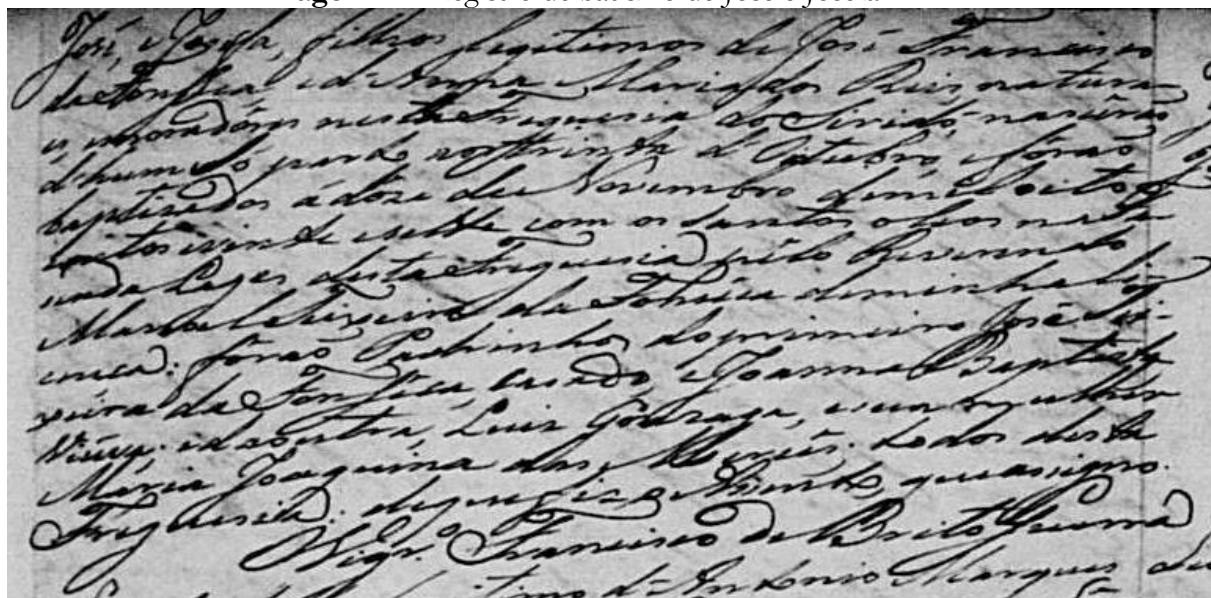 José, e Josefa, filhos legitimos de José Francisco
da Fonseca e d'Anna Maria dos Reis natura-
es, e moradores nesta Freguesia do Seridó, nascerão
d'hum só parto aos trinta d'Outubro, e forão
baptizados á doze de Novembro de mil oito c
entos e vinte e sette com os santos oleos na
Lages desta Freguesia pelo Reverendo
Manoel Teixeira da Fonseca de minha li-
cença: forão Padrinhos do primeiro José Tei-
xeira da Fonseca, casado, e Joanna Baptista
e da outra, Luis Gonzaga, e sua mulher
Maria Joaquina das Mercês todos desta
Freguesia: de que fiz este Assento, que assigno.
Vigr.º Francisco de Brito Guerra
d'Antonio Marques